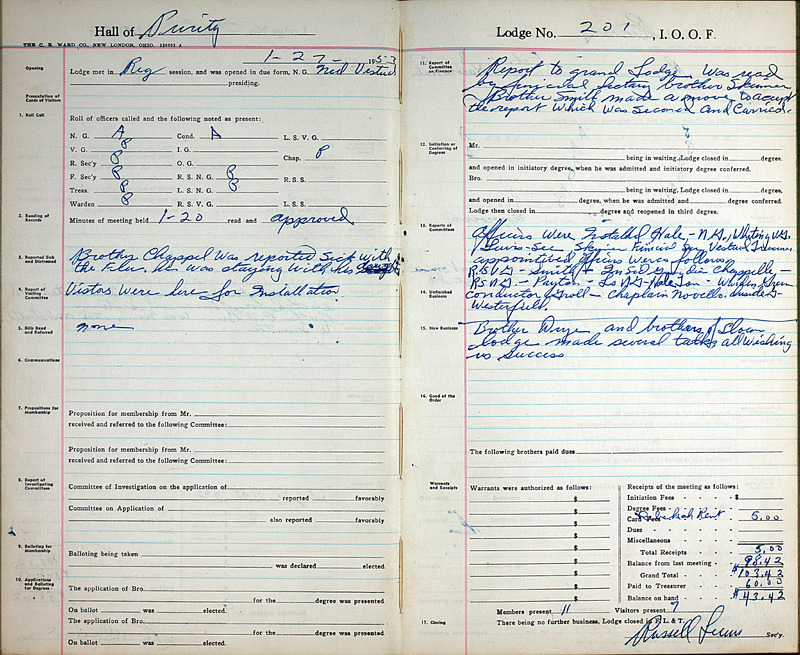 Hall of Purity
THE C. E. WARD CO., NEW LONDON, OHIO.
1-27- 1953
Opening
Lodge met in Reg session, and was opened in due form, N. G. Ned Vestud
presiding.
Presentation of Cards of Visitors
1. Roll Call
Roll of officers called and the following noted as present:
N. G. A Cond. A L. S. V. G.
V. G. P I. G. Chap. P
R. Sec'y P O. G.
F. Sec'y P R. S. N. G. P R. S. S.
Treas. P L. S. N. G. P
Warden P R. S. V. G. L. S. S.
2. Reading of Records
Minutes of meeting held 1-20 read and approved
3. Reported Sick and Distressed
Brother Chappel was reported Sick with
the Flu. he was staying with his
4. Report of Visiting Committee
Vistors Were here for Installation
5. Bills Read and Referred
none
6. Communications
7. Propositions for Membership
Proposition for membership from Mr.
received and referred to the following Committee:
Proposition for membership from Mr.
received and referred to the following Committee:
8. Report of Investigating Committees
Committee of Investigation on the application of
reported favorably
Committee on Application of
also reported favorably
9. Balloting for Membership
Balloting being taken
was declared elected.
10. Applications and Balloting for Degrees
The application of Bro.
for the degree was presented.
On ballot was elected.
The application of Bro.
for the degree was presented.
On ballot was elected.
Lodge No. 201, I. O. O. F.
11. Report of Committee on Finance
Report to grand Lodge Was read
by financial Sectary brother Skinner
Brother Smith made a move to accept
the report Which was Second and Carried.
12. Initiation or Conferring of Degrees
Mr.
being in waiting, Lodge closed in degree.
and opened in initiatory degree, when he was admitted and initiatory degree conferred.
Bro.
being in waiting, Lodge closed in degree.
and opened in degree, when he was admitted and degree conferred.
Lodge then closed in degree and reopened in third degree.
13. Reports of Committees
officers Were Installed Hale - N.G., Whiting V.G.
Lewis - Sec Skinner Finacial Sec Vestud Treasurer
appointed officers were follows
R.S.V.G - Smith - Chappelle -
R.S.N.G - Payton - Warden
14. Unfinished Business
conductor Groll - Chaplain Novello.
Westerfield.
15. New Business
Brother and brothers of Sloan
lodge made several talks all Wishing
us Success
16. Good of the Order
The following brothers paid dues
Warrants and Receipts
Warrants were authorized as follows:
$
$
$
$
$
$
$
$
$
Receipts of the meeting as follows:
Initiation Fees $
Degree Fees
Card Fees Rebekah Rent 5.00
Dues
Miscellaneous
Total Receipts 5.00
Balance from last meeting 98.42
Grand Total $103.42
Paid to Treasurer 60.00
Balance on hand $43.42
Members present 11 Visitors present 7
17. Closing
There being no further business, Lodge closed in F. L. & T.
Russell Lewis Sec'y.